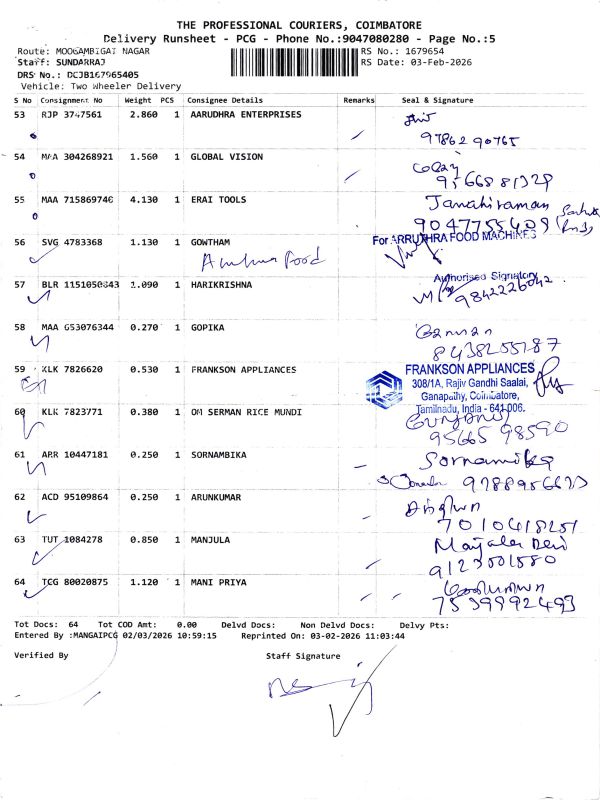 THE PROFESSIONAL COURIERS, COIMBATORE
Delivery Runsheet - PCG - Phone No.:9047080280 - Page No.:5
Route: MOOGAMBIGAI NAGAR
RS No.: 1679654
Staff: SUNDARRAJ
RS Date: 03-Feb-2026
DRS No.: DCJB167965405
Vehicle: Two Wheeler Delivery
S No Consignment No Weight PCS Consignee Details Remarks Seal & Signature
53 RJP 3747561 2.860 1 AARUDHRA ENTERPRISES
97862 90765
54 MAA 304268921 1.560 1 GLOBAL VISION
9566881329
55 MAA 715869746 4.130 1 ERAI TOOLS Janakiraman
9047755409
56 SVG 4783368 1.130 1 GOWTHAM For ARRUTHRA FOOD MACHINES
Food
Authorised Signatory
57 BLR 1151050843 1.090 1 HARIKRISHNA 9842226042
58 MAA 653076344 0.270 1 GOPIKA
8438255187
59 KLK 7826620 0.530 1 FRANKSON APPLIANCES FRANKSON APPLIANCES
308/1A, Rajiv Gandhi Saalai,
Ganapathy, Coimbatore,
Tamilnadu, India - 641 006.
60 KLK 7823771 0.380 1 OM SERMAN RICE MUNDI
95665 98590
61 ARR 10447181 0.250 1 SORNAMBIKA Sornambika
62 ACD 95109864 0.250 1 ARUNKUMAR
63 TUT 1084278 0.850 1 MANJULA
9123501580
64 TCG 80020875 1.120 1 MANI PRIYA
7539992493
Tot Docs: 64 Tot COD Amt: 0.00 Delvd Docs: Non Delvd Docs: Delvy Pts:
Entered By :MANGAIPCG 02/03/2026 10:59:15 Reprinted On: 03-02-2026 11:03:44
Verified By Staff Signature